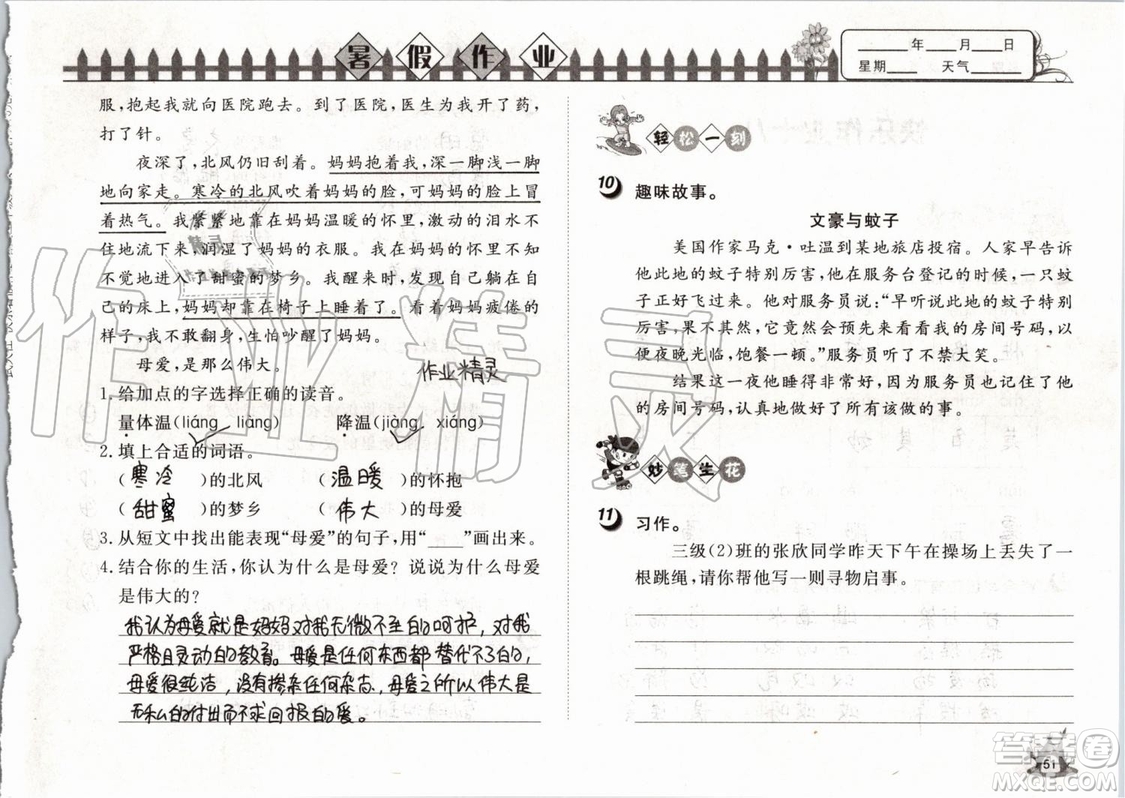 暑假作业
____年___月___日
星期____ 天气____
服，抱起我就向医院跑去。到了医院，医生为我开了药，
打了针。
夜深了，北风仍旧刮着。妈妈抱着我，一脚深一脚浅一脚
地向家走。寒冷的北风吹着妈妈的脸，可妈妈的脸上冒
着热气。我紧紧地靠在妈妈温暖的怀里，激动的泪水不
住地流下来，润湿了妈妈的衣服。我在妈妈的怀里不知
不觉地进入了甜蜜的梦乡。我醒来时，发现自己在自
己的床上，妈妈却靠在椅子上睡着了。看着妈妈疲倦的
样子，我不敢翻身，生怕吵醒了妈妈。
母爱，是那么伟大。
作业精灵
1. 给加点的字选择正确的读音。
量体温（liáng liàng） 降温（jiàng xiáng）
2. 填上合适的词语。
（寒冷）的北风 （温暖）的怀抱
（甜蜜）的梦乡 （伟大）的母爱
3. 从短文中找出能表现“母爱”的句子，用“____”画出来。
4. 结合你的生活，你认为什么是母爱？说说为什么母爱
是伟大的？
我认为母爱就是妈妈对我无微不至的呵护，对我
严格且灵动的教育。母爱是任何东西都替代不了的
母爱很纯洁，没有掺杂任何杂志，母爱之所以伟大是
无私的付出而不求回报的爱。
轻松一刻
10 趣味故事。
文豪与蚊子
美国作家马克·吐温到某地旅店投宿。人家早告诉
他此地的蚊子特别厉害，他在服务台登记的时候，一只蚊
子正好飞过来。他对服务员说：“早听说此地的蚊子特别
厉害，果真如此，它竟然会预先来看看我的房间号码，以
便夜晚光临，饱餐一顿。”服务员听了不禁大笑。
结果这一夜他睡得非常好，因为服务员也记住了他
的房间号码，认真地做好了所有该做的事。
妙笔生花
11 习作。
三级（2）班的张欣同学昨天下午在操场上丢失了一
根跳绳，请你帮他写一则寻物启事。
51
作业精灵
答案圈
MXQE.COM